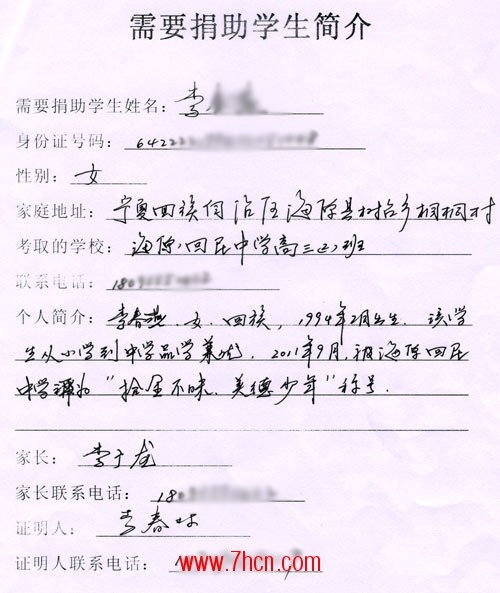 需要捐助学生简介
需要捐助学生姓名：李
身份证号码：64222
性别：女
家庭地址：宁夏回族自治区海原县树台乡相桐村
考取的学校：海原回民中学高三（二）班
联系电话：180
个人简介：李春燕，女，回族，1994年2月出生，该学
生从小学到中学品学兼优，2011年9月，被海原回民
中学评为“拾金不昧，美德少年”称号．
家长：李于龙
家长联系电话：180
证明人：春
证明人联系电话：
www.7hcn.com